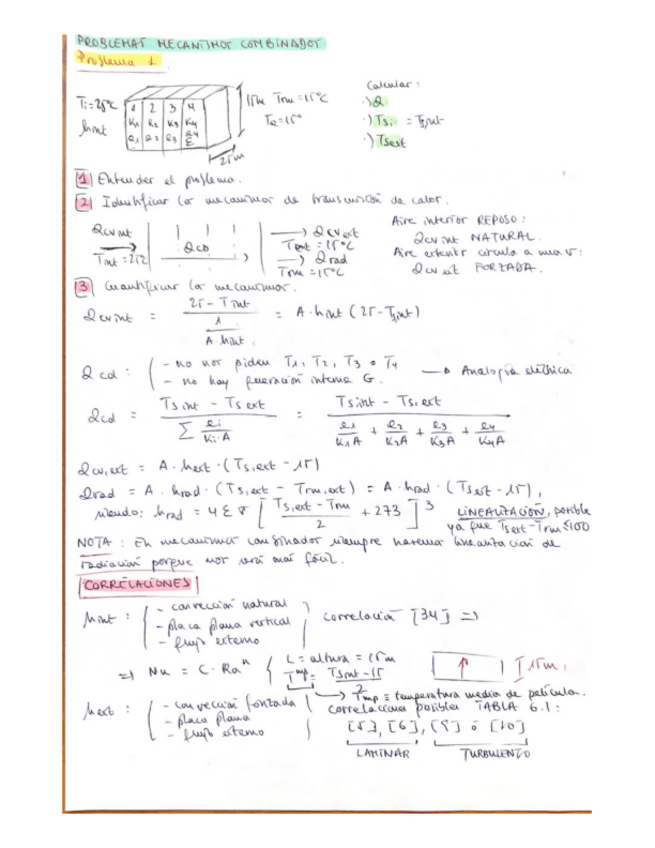 PROBLEMAS MECANISMOS COMBINADOS
Problema 1.
Calcular:
Ti=25ºC
hint
1 2 3 4
K1 K2 K3 K4
e1 e2 e3 e4
ε
15m Trm=15ºC
Te=15º
25m
·) Q
·) Ts,i = Ts,int
·) Ts,ext
1 Entender el problema.
2 Identificar los mecanismos de transmisión de calor.
Qcv,int
Tint=25ºC
Qcd
Qcv,ext
Text=15ºC
Qrad
Trm=15ºC
Aire interior REPOSO:
Qcv,int NATURAL.
Aire exterior circula a una v:
Qcv,ext FORZADA.
3 Cuantificar los mecanismos.
Qcv,int = 25 - Ts,int / 1 / A·hint = A·hint (25 - Ts,int)
Qcd : - no nos piden T1, T2, T3 o T4
- no hay generación interna G.
→ Analogía eléctrica
Qcd = Ts,int - Ts,ext / Σ ei / Ki·A = Ts,int - Ts,ext / e1/K1A + e2/K2A + e3/K3A + e4/K4A
Qcv,ext = A·hext·(Ts,ext - 15)
Qrad = A·hrad·(Ts,ext - Trm,ext) = A·hrad·(Ts,ext - 15),
siendo: hrad = 4 ε σ [ Ts,ext - Trm / 2 + 273 ]3 LINEALIZACIÓN, posible
ya que Ts,ext - Trm ≤100
NOTA: En mecanismos combinados siempre haremos linealización de
radiación porque nos será más fácil.
CORRELACIONES
hint : - convección natural
- placa plana vertical
- flujo externo
correlación [34] ⇒
⇒ Nu = C·Ra^n L = altura = 15m
Tmp = Ts,int - 15 / 2
15m.
→ Tmp = temperatura media de película.
hext : - convección forzada
- placa plana
- flujo externo
correlaciones posibles TABLA 6.1:
[5], [6], [9] ó [10]
LAMINAR TURBULENTO